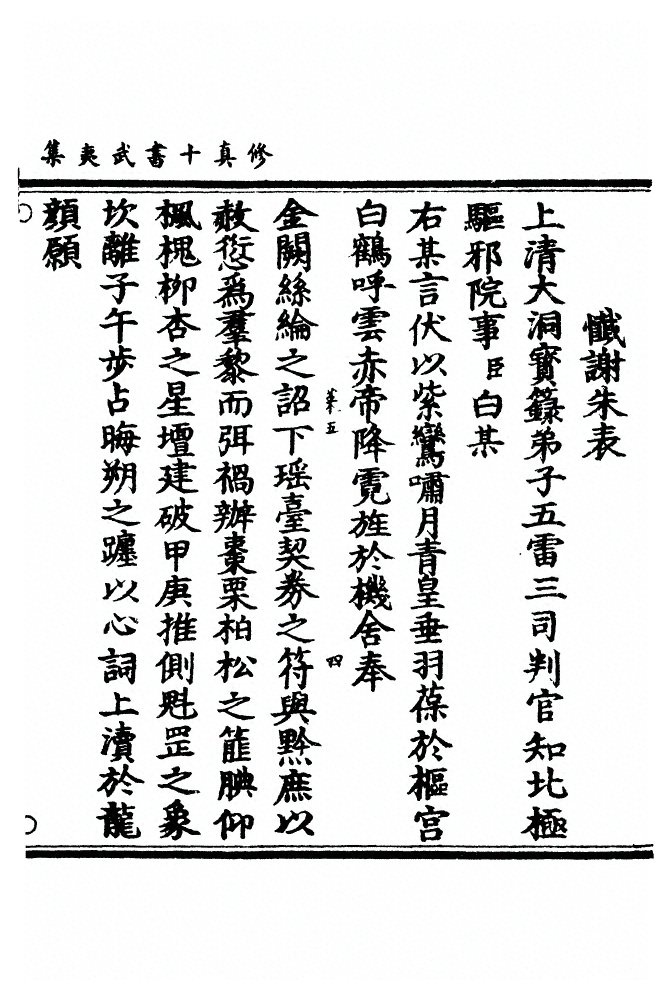 修真十書武夷集
懺謝朱表
上清大洞寶籙弟子五雷三司判官知北極
驅邪院事臣白某
右某言伏以紫鸞嘯月青皇垂羽葆於樞宮
白鶴呼雲赤帝降霓旌於機舍奉
金闕絲綸之詔下瑤臺契券之符與黔庶以
赦愆爲羣黎而弭禍辦棗栗柏松之䕠腆仰
楓槐柳杏之星壇建破甲庚推側魁罡之象
坎離子午步占晦朔之躔以心詞上瀆於龍
顏願